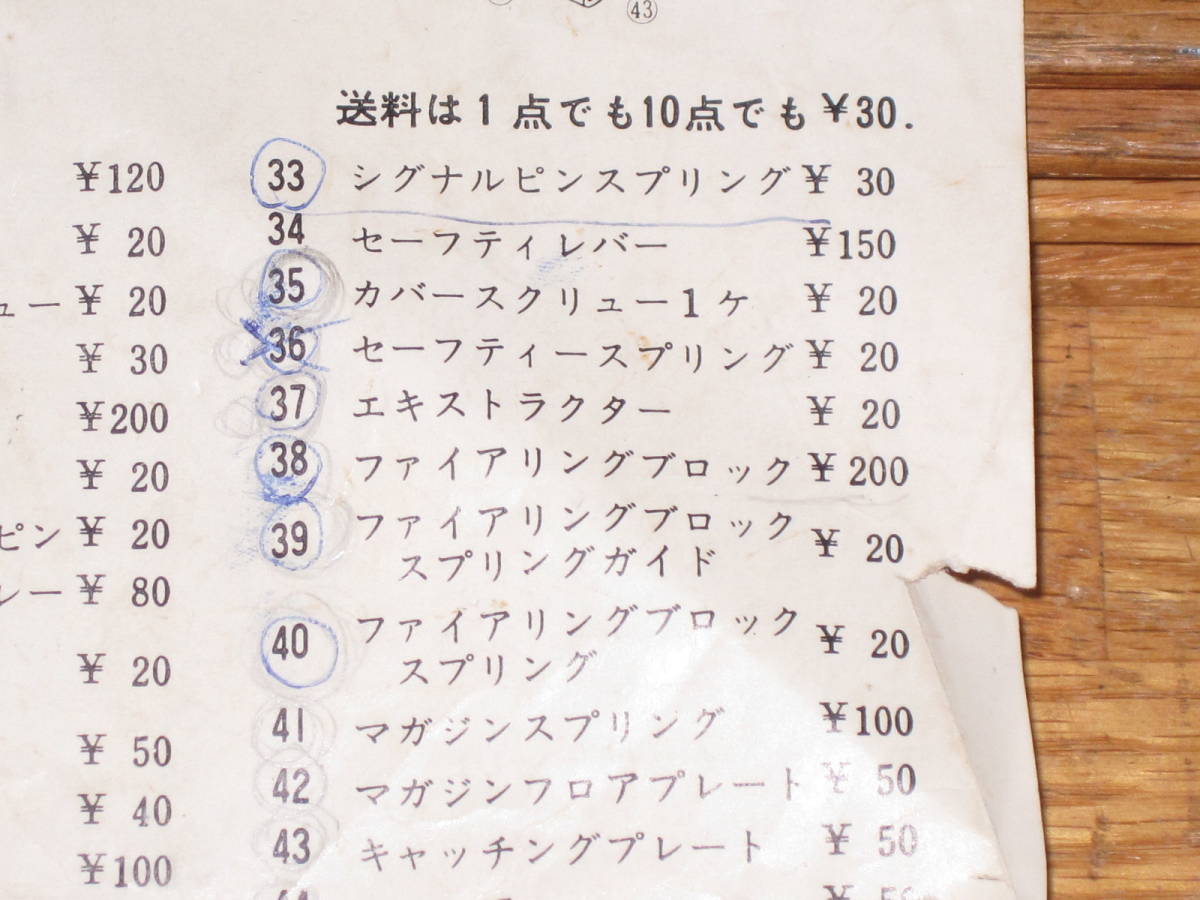 43
送料は1点でも10点でも¥30.
¥120
¥ 20
ュー¥ 20
¥ 30
¥200
¥ 20
ピン¥ 20
レー¥ 80
¥ 20
¥ 50
¥ 40
¥100
33 シグナルピンスプリング¥ 30
34 セーフティレバー ¥150
35 カバースクリュー1ケ ¥ 20
36 セーフティースプリング¥ 20
37 エキストラクター ¥ 20
38 ファイアリングブロック¥200
39 ファイアリングブロック
スプリングガイド ¥ 20
40 ファイアリングブロック
スプリング ¥ 20
41 マガジンスプリング ¥100
42 マガジンフロアプレート¥ 50
43 キャッチングプレート ¥ 50